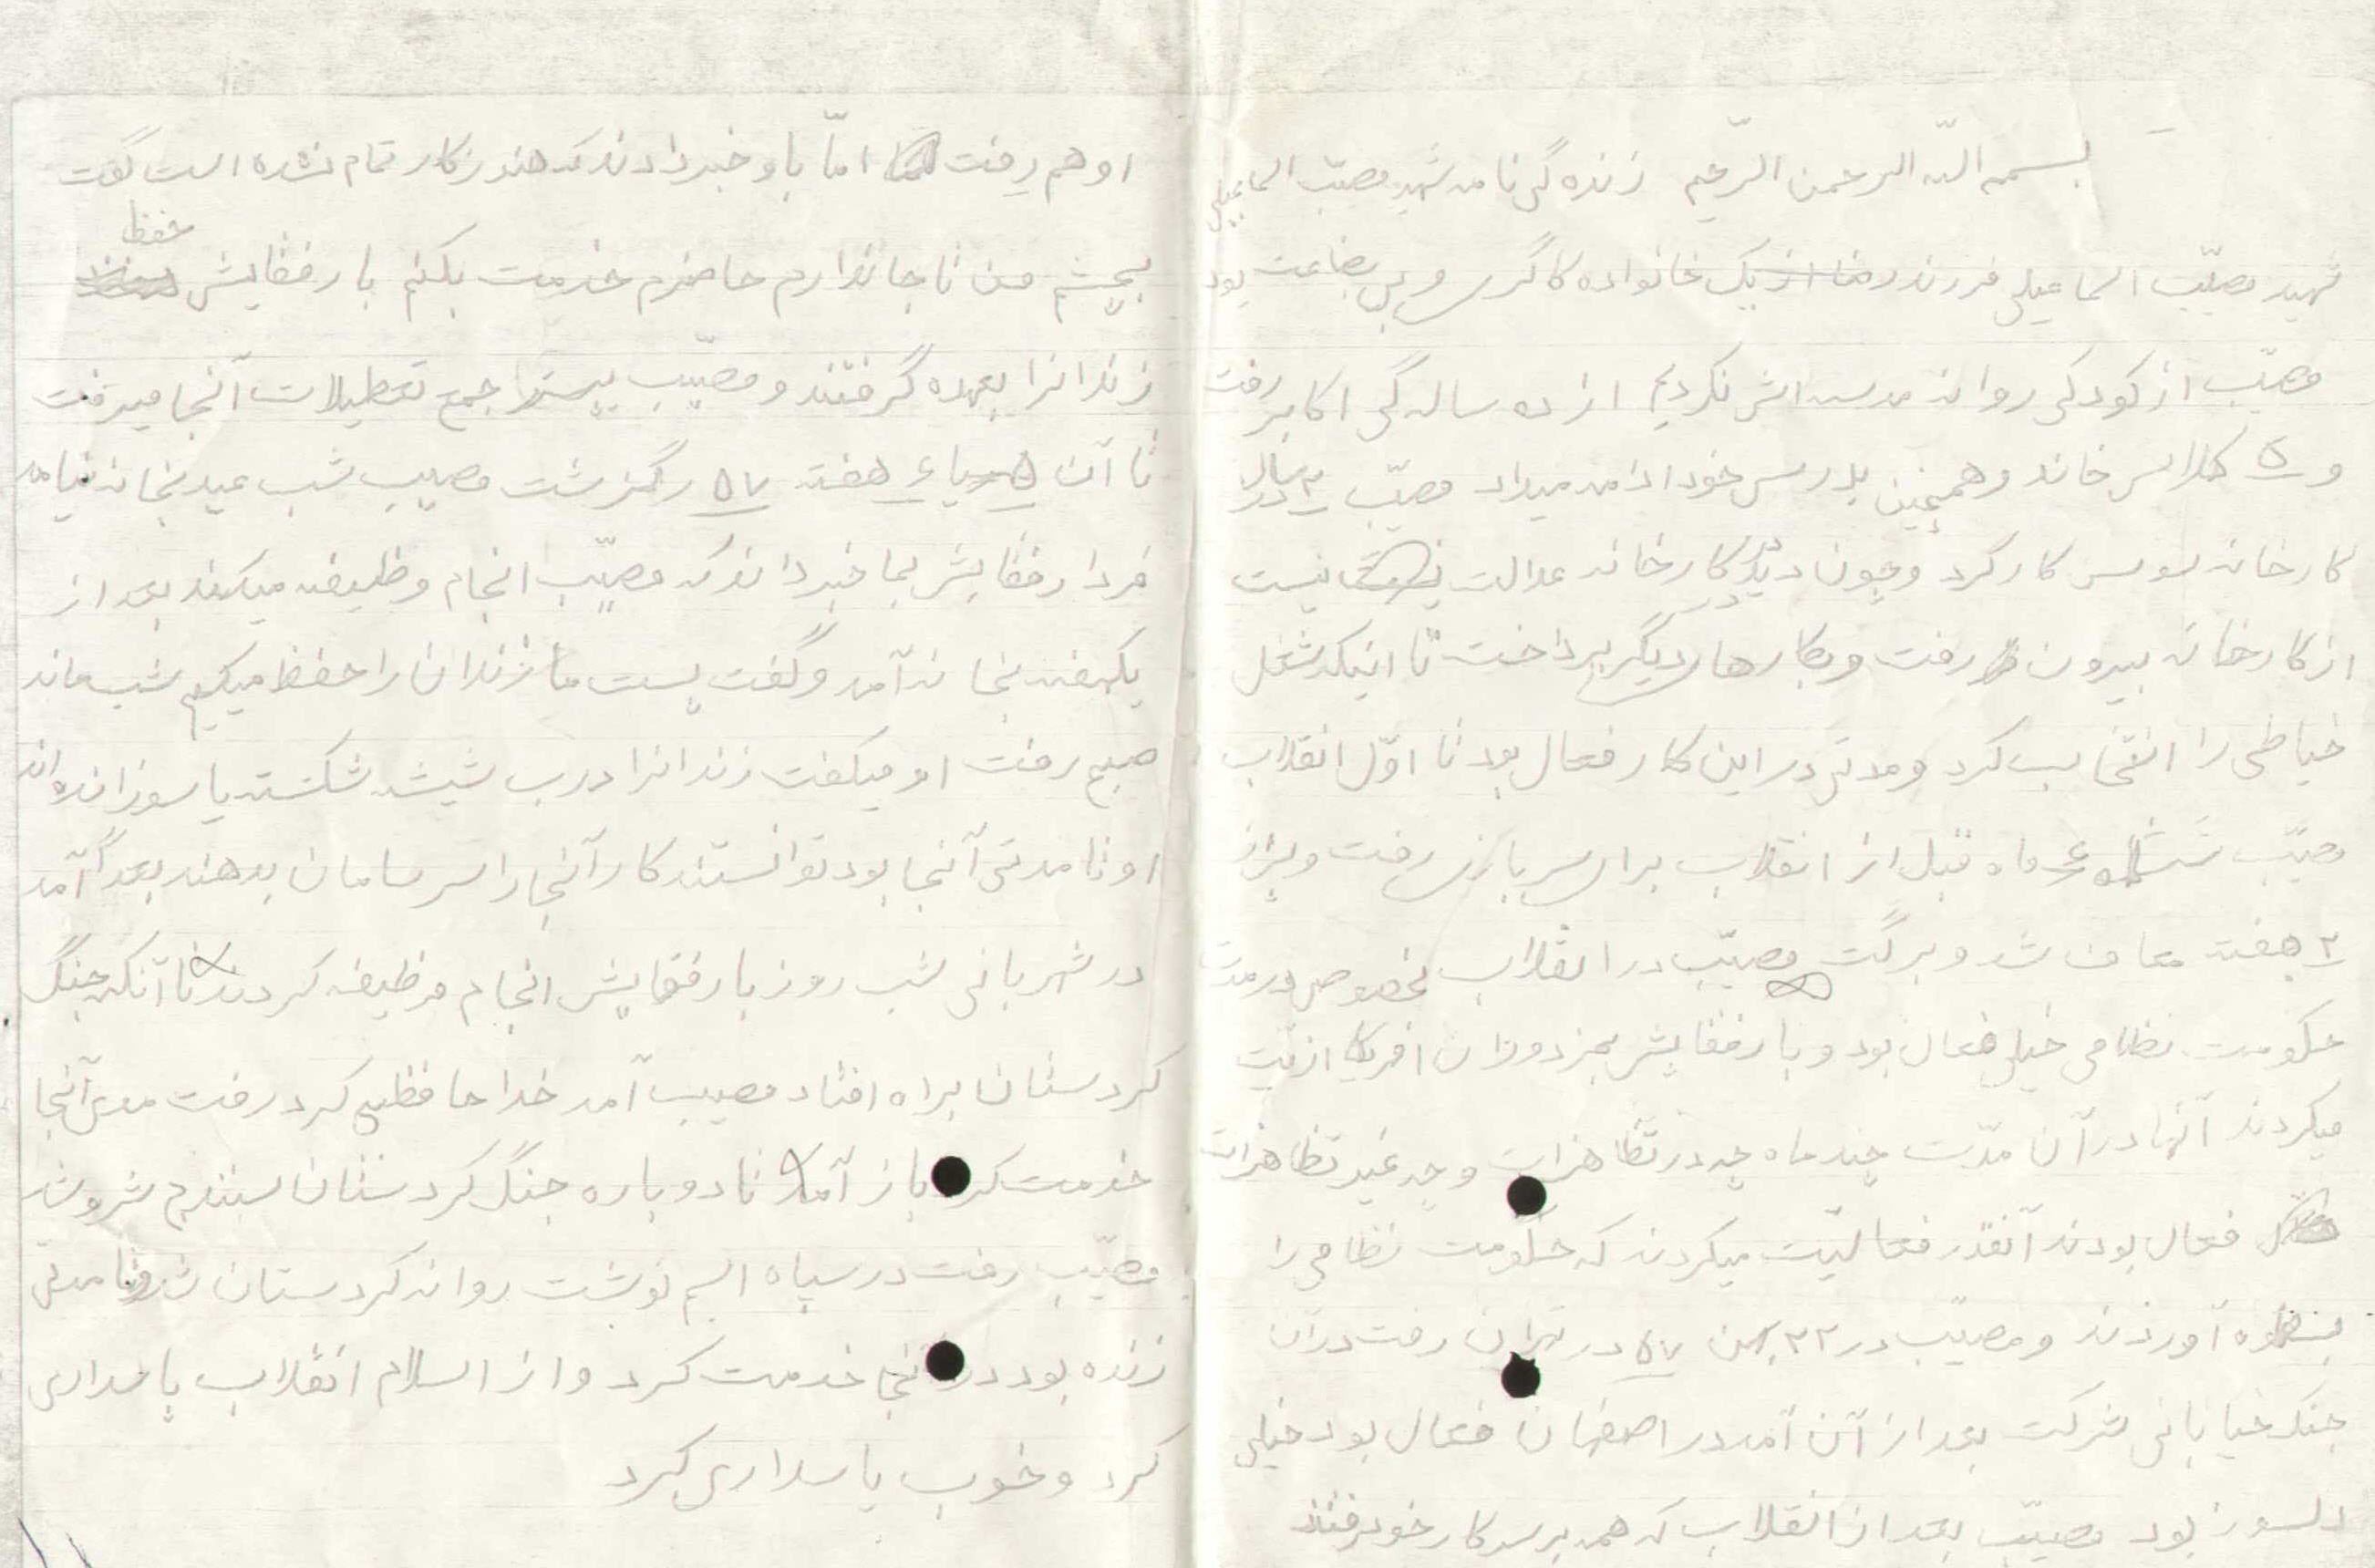 بسمه اللّه الرحمن الرّحیم زنده گی نامه شهید مصیّب اسماعیلی
شهید مصیّب اسماعیلی فرزند رضا از یک خانواده کاگری و بی بضاعت بود
مصیّب از کودکی روانه مدرسه اش نکردیم از ده ساله گی اکابر رفت
و ۵ کلاس خاند و همچنین بدرس خود ادامه میداد مصیّب ۲ سال در
کارخانه سوسن کار کرد و چون دید در کارخانه عدالت نیست
از کارخانه بیرون رفت و بکارهای دیگر پرداخت تا اینکه شغل
خیاطی را انتخاب کرد و مدتی در این کار فعال بود تا اوّل انقلاب
مصیّب ۶ ماه قبل از انقلاب برای سربازی رفت و پس از
۲ هفته معاف شد و برگشت مصیّب در انقلاب بخصوص در مدت
حکومت نظامی خیلی فعال بود و با رفقایش بمزدوران امریکا ازیّت
میکردند آنها در آن مدّت چند ماه چه در تظاهرات و چه غیر تظاهرات
فعال بودند آنقدر فعالیّت میکردند که حکومت نظامی را
بستوه آوردند و مصیّب در ۲۲ بهمن ۵۷ در تهران رفت در آن
جنک خیابانی شرکت بعد از آن آمد در اصفهان فعال بود خیلی
دلسوز بود مصیّب بعد از انقلاب که همه بر سر کار خود رفتند
او هم رفت امّا باو خبر دادند که هنوز کار تمام نشده است گفت
بچشم من تا جاندارم حاضرم خدمت بکنم با رفقایش حفظ
زندانرا بعهده گرفتند و مصیّب جمع تعطیلات آنجا میرفت
تا آن هفته ۵۷ گزشت مصیب شب عید بخانه نیامد
فردا رفقایش بما خبر داند که مصیّب انجام وظیفه میکند بعد از
یکهفته بخانه آمد و گفت پست ما زندان را حفظ میکیم شب ماند
صبح رفت او میکفت زندانرا درب شیشه شکسته یا سوزانده اند
او تا مدتی آنجا بود توانستند کار آنجا را سر سامان بدهند بعداً آمد
در شهربانی شب روز با رفقایش انجام وظیفه کردند تا آنکه جنگ
کردستان براه افتاد مصیب آمد خدا حافظی کرد رفت مدتی آنجا
خدمت کرد باز آمد تا دوباره جنگ کردستان سنندج شروع شد
مصیّب رفت در سپاه اسم نوشت روانه کردستان شد تا مدتی
زنده بود در آنجا خدمت کرد و از اسلام انقلاب پاسداری
کرد و خوب پاسداری کرد